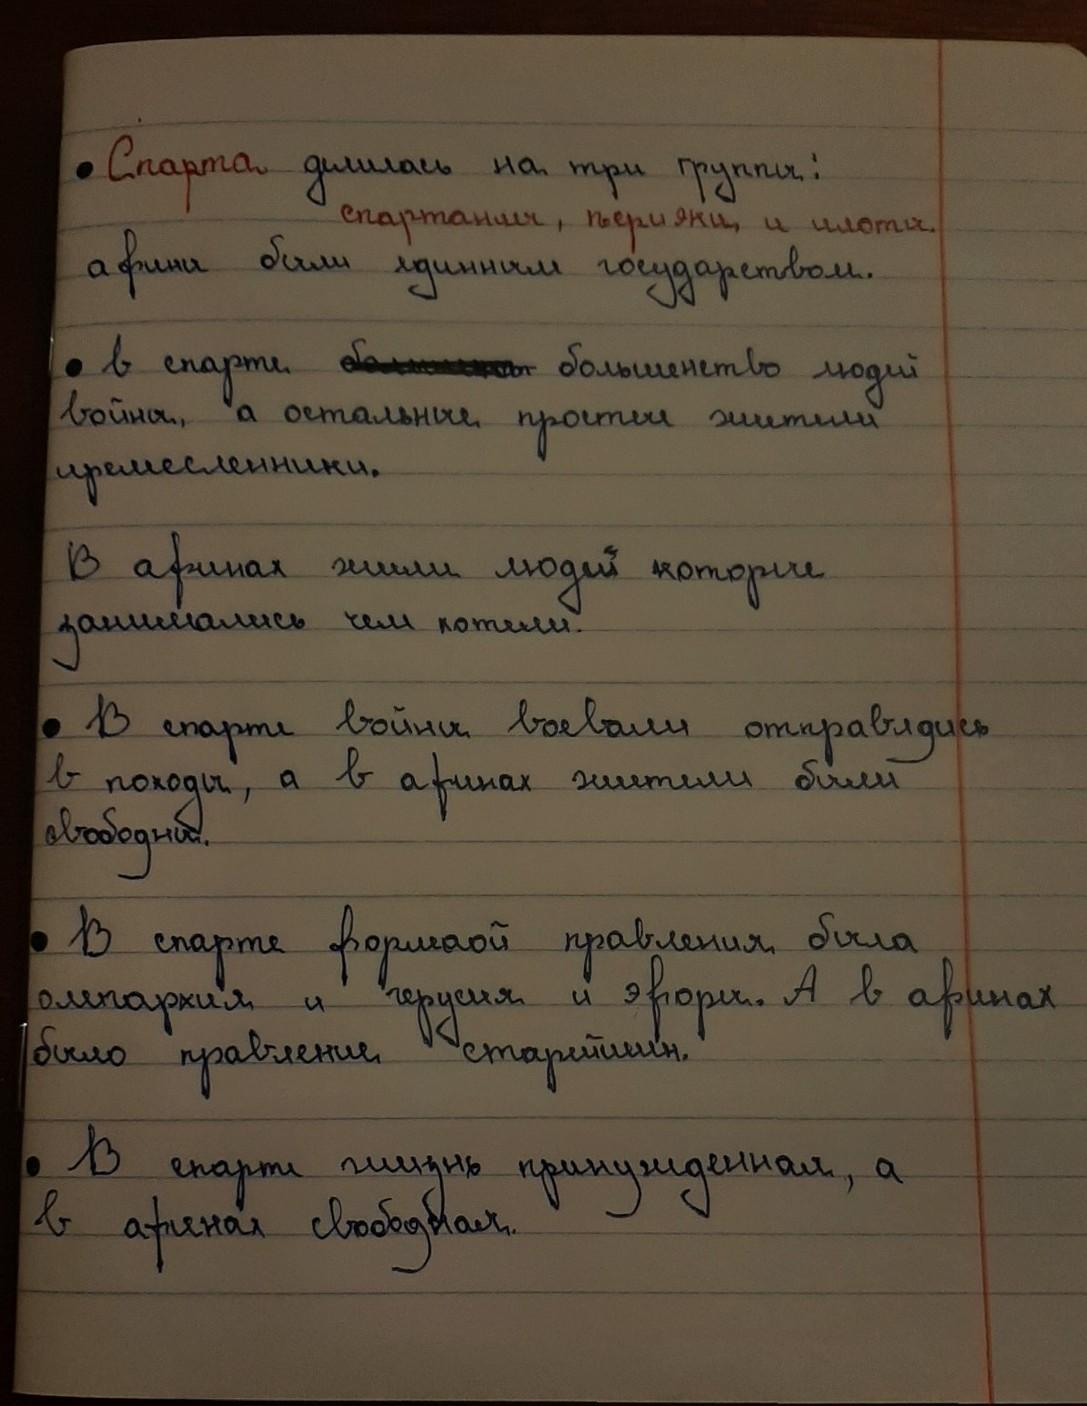 • Спарта делилась на три группы:
спартанци, перияки, и илоты.
афины были единным государством.
• в спарте большенство людей
войны, а остальные простые жители
иремесленники.
В афинах жили людей которые
занимались чем хотели.
• В спарте войны воевали отправлялись
в походы, а в афинах жители были
свободны.
• В спарте формаой правления была
олигархия и герусия и эфоры. А в афинах
было правление старейшин.
• В спарте жизнь принужденная, а
в афинах свободная.